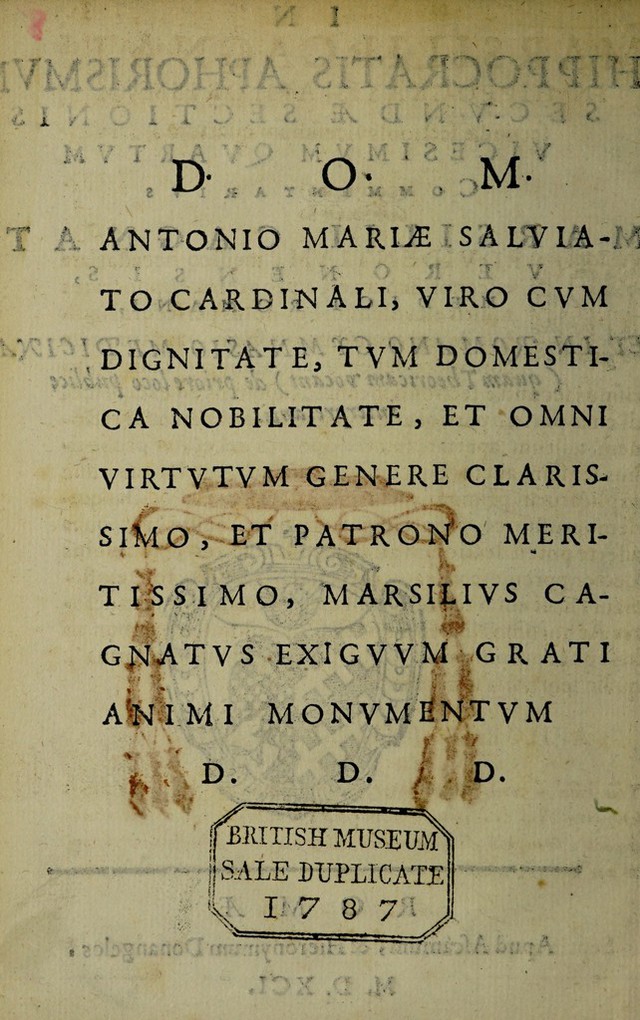 D. O. M.
ANTONIO MARIÆ SALVIA-
TO CARDINALI, VIRO CVM
DIGNITATE, TVM DOMESTI-
CA NOBILITATE, ET OMNI
VIRTVTVM GENERE CLARIS-
SIMO, ET PATRONO MERI-
TISSIMO, MARSILIVS CA-
GNATVS EXIGVVM GRATI
ANIMI MONVMENTVM
D. D. D.
BRITISH MUSEUM
SALE DUPLICATE
1787